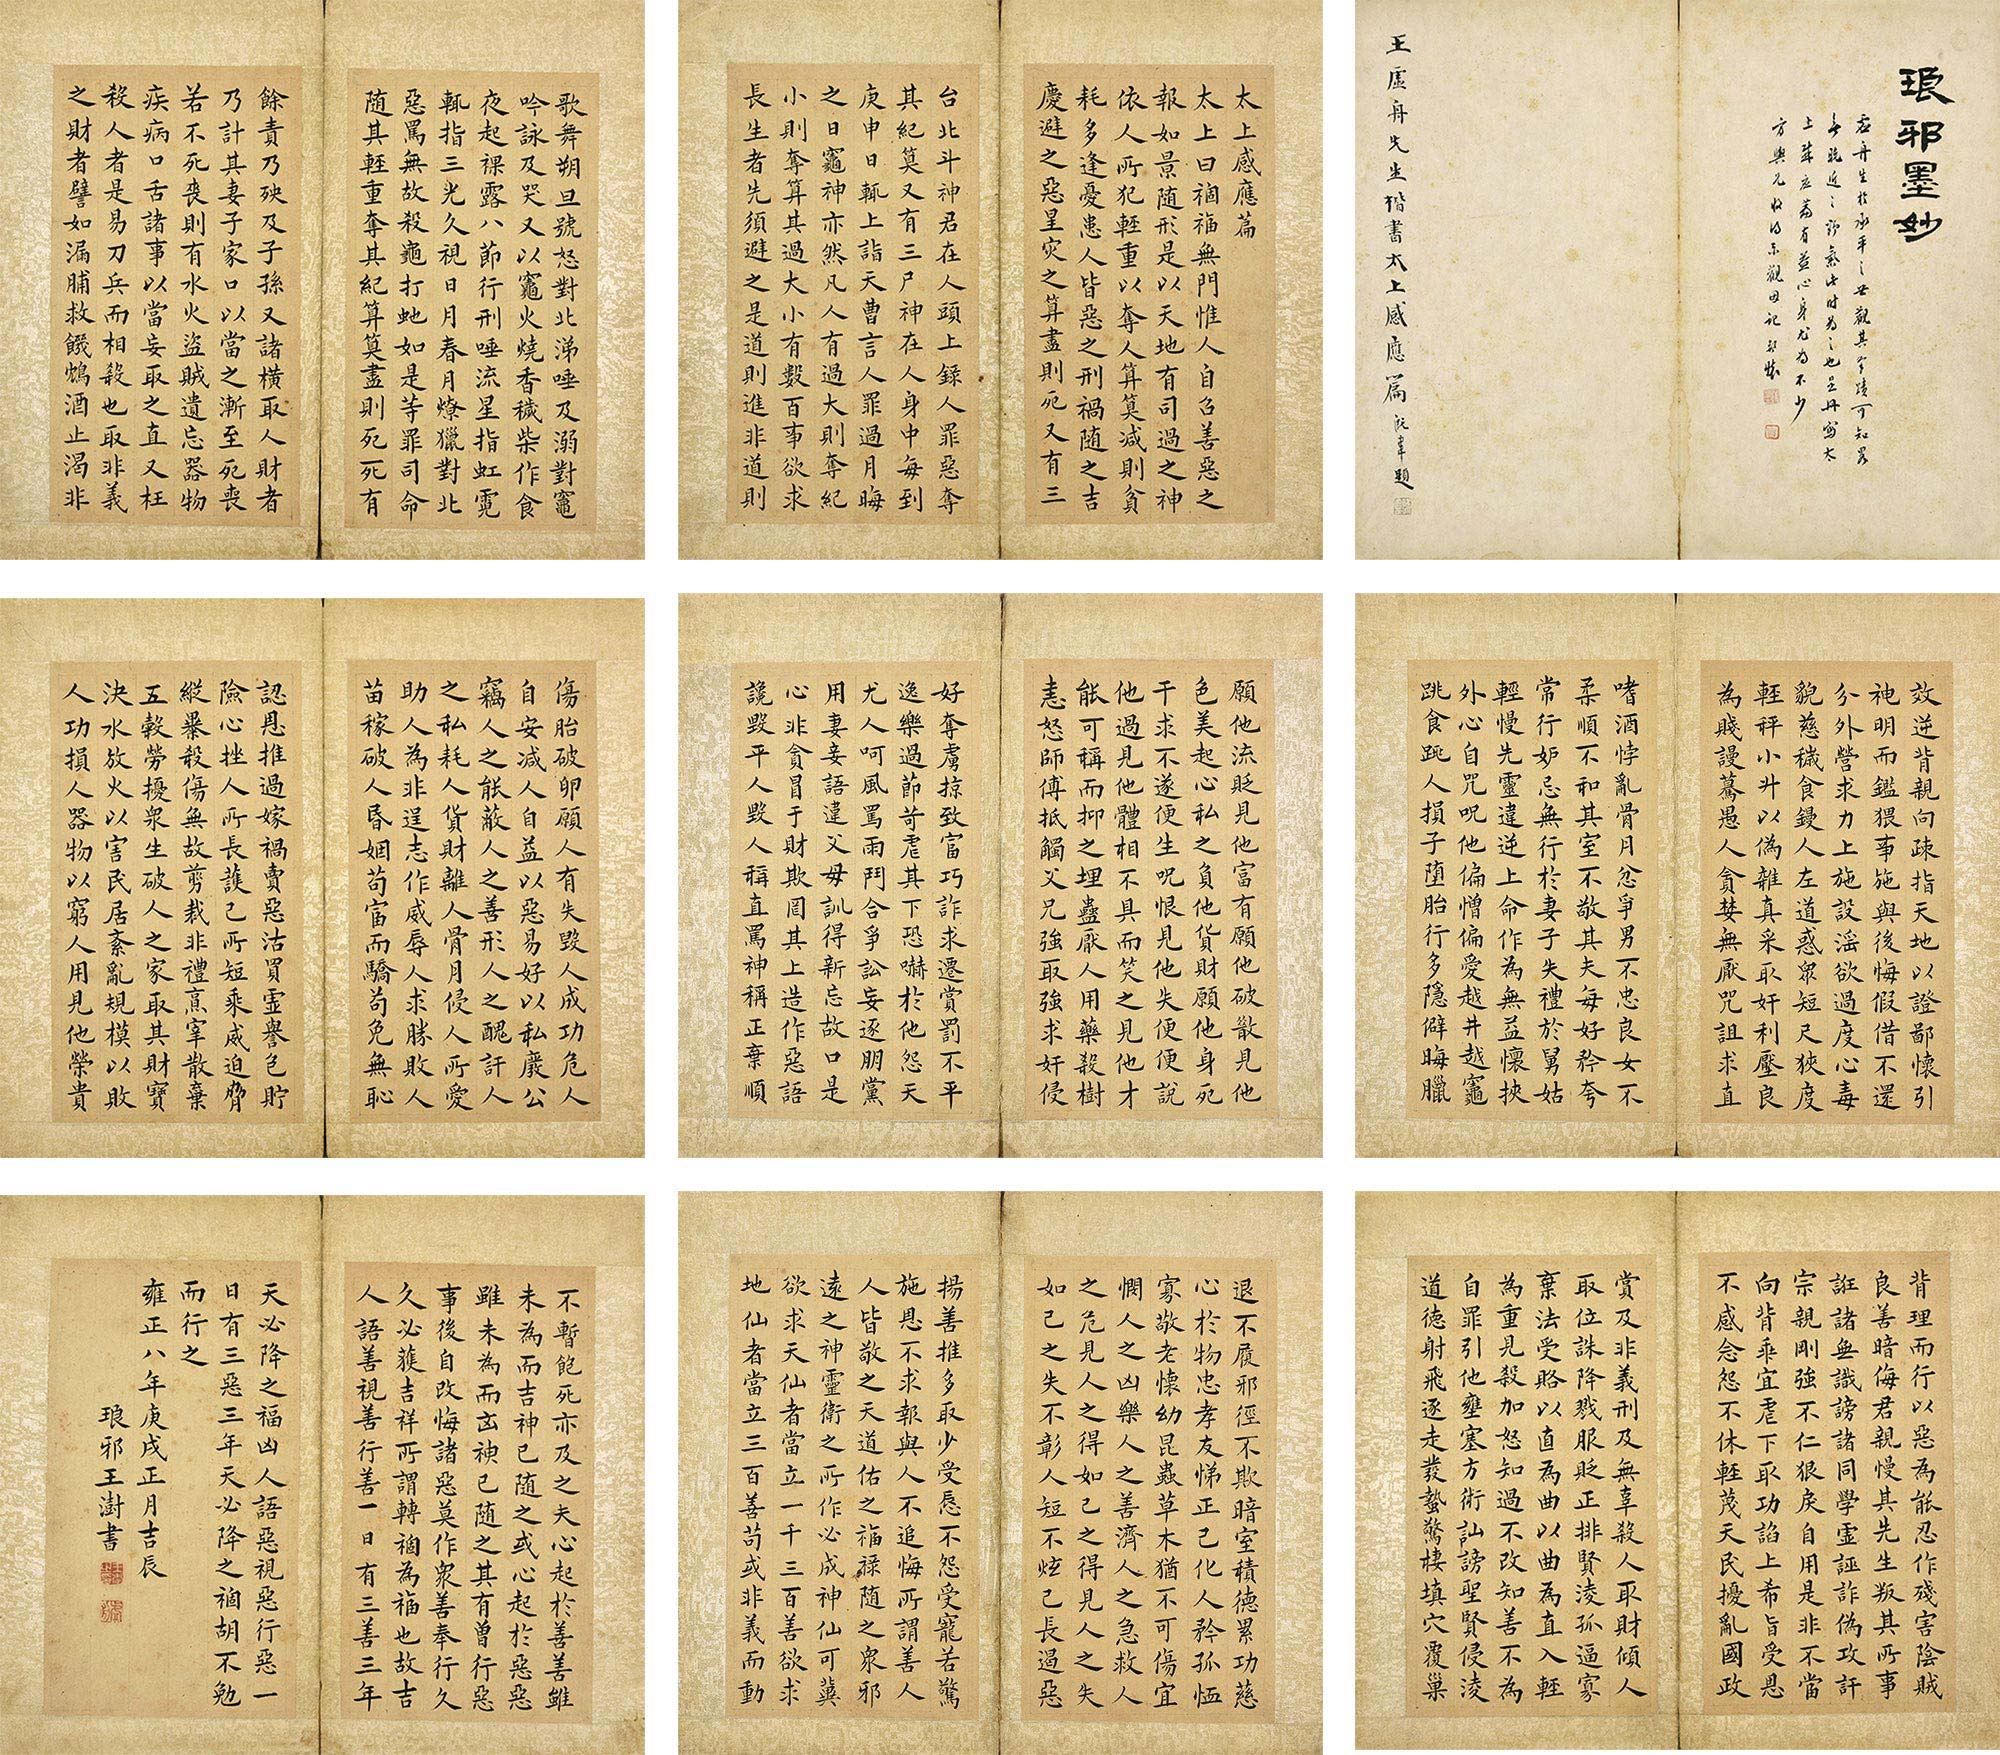 琅邪墨妙
王虛舟先生楷書太上感應篇
太上感應篇
太上曰禍福無門惟人自召善惡之
報如景随形是以天地有司過之神
依人所犯輕重以奪人算算減則貧
耗多逢憂患人皆惡之刑禍随之吉
慶避之惡星灾之算盡則死又有三
台北斗神君在人頭上錄人罪惡奪
其紀算又有三尸神在人身中每到
庚申日輒上詣天曹言人罪過月晦
之日竈神亦然凡人有過大則奪紀
小則奪算其過大小有數百事欲求
長生者先須避之是道則進非道則
退不履邪徑不欺暗室積德累功慈
心於物忠孝友悌正己化人矜孤恤
寡敬老懷幼昆蟲草木猶不可傷宜
憫人之凶樂人之善濟人之急救人
之危見人之得如己之得見人之失
如己之失不彰人短不炫己長遏惡
揚善推多取少受辱不怨受寵若驚
施恩不求報與人不追悔所謂善人
人皆敬之天道佑之福祿随之衆邪
遠之神靈衛之所作必成神仙可冀
欲求天仙者當立一千三百善欲求
地仙者當立三百善苟或非義而動
背理而行以惡為能忍作殘害陰賊
良善暗侮君親慢其先生叛其所事
誑諸無識謗諸同學虛誣詐偽攻訐
宗親剛強不仁狠戾自用是非不當
向背乖宜虐下取功諂上希旨受恩
不感念怨不休輕蔑天民擾亂國政
賞及非義刑及無辜殺人取財傾人
取位誅降戮服貶正排賢淩孤逼寡
棄法受賂以直為曲以曲為直入輕
為重見殺加怒知過不改知善不為
自罪引他壅塞方術訕謗聖賢侵淩
道德射飛逐走發蟄驚棲填穴覆巢
傷胎破卵願人有失毀人成功危人
自安減人自益以惡易好以私廢公
竊人之能蔽人之善形人之醜訐人
之私耗人貨財離人骨月侵人所愛
助人為非逞志作威辱人求勝敗人
苗稼破人昏姻苟富而驕苟免無恥
認恩推過嫁禍賣惡沽買虛譽包貯
險心挫人所長護己所短乘威迫脅
縱暴殺傷無故剪裁非禮烹宰散棄
五穀勞擾衆生破人之家取其財寶
決水放火以害民居紊亂規模以敗
人功損人器物以窮人用見他榮貴
願他流貶見他富有願他破散見他
色美起心私之負他貨財願他身死
干求不遂便生咒恨見他失便便說
他過見他體相不具而笑之見他才
能可稱而抑之埋蠱厭人用藥殺樹
恚怒師傅抵觸父兄強取強求奸侵
好奪虜掠致富巧詐求遷賞罰不平
逸樂過節苛虐其下恐嚇於他怨天
尤人呵風罵雨鬥合爭訟妄逐朋黨
用妻妾語違父母訓得新忘故口是
心非貪冒于財欺罔其上造作惡語
讒毀平人毀人稱直罵神稱正棄順
效逆背親向疎指天地以證鄙懷引
神明而鑑猥事施與後悔假借不還
分外營求力上施設淫欲過度心毒
貌慈穢食餧人左道惑衆短尺狹度
輕秤小升以偽雜真采取奸利壓良
為賤謾驀愚人貪婪無厭咒詛求直
嗜酒悖亂骨月忿爭男不忠良女不
柔順不和其室不敬其夫每好矜夸
常行妒忌無行於妻子失禮於舅姑
輕慢先靈違逆上命作為無益懷挾
外心自咒咒他偏憎偏愛越井越竈
跳食跳人損子墮胎行多隱僻晦臘
歌舞朔旦號怒對北涕唾及溺對竈
吟詠及哭又以竈火燒香穢柴作食
夜起裸露八節行刑唾流星指虹霓
輒指三光久視日月春月燎獵對北
惡罵無故殺龜打虵如是等罪司命
随其輕重奪其紀算算盡則死死有
餘責乃殃及子孫又諸橫取人財者
乃計其妻子家口以當之漸至死喪
若不死喪則有水火盜賊遺忘器物
疾病口舌諸事以當妄取之直又枉
殺人者是易刀兵而相殺也取非義
之財者譬如漏脯救饑鴆酒止渴非
不暫飽死亦及之夫心起於善善雖
未為而吉神已随之或心起於惡惡
雖未為而凶神已随之其有曾行惡
事後自改悔諸惡莫作衆善奉行久
久必獲吉祥所謂轉禍為福也故吉
人語善視善行善一日有三善三年
天必降之福凶人語惡視惡行惡一
日有三惡三年天必降之禍胡不勉
而行之
雍正八年庚戌正月吉辰
琅邪王澍書